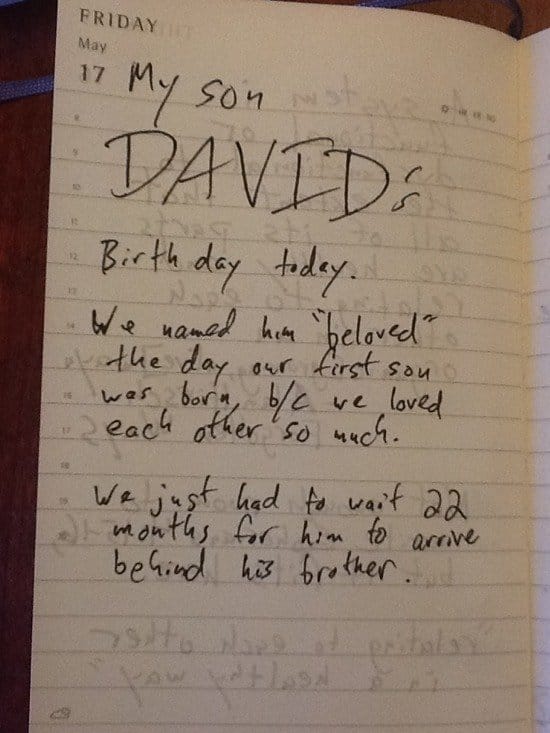 FRIDAY
May
17 My son
DAVID's
Birthday today.
We named him "beloved"
the day our first son
was born, b/c we loved
each other so much.
We just had to wait 22
months for him to arrive
behind his brother.
"relating to each other
in a healthy way"